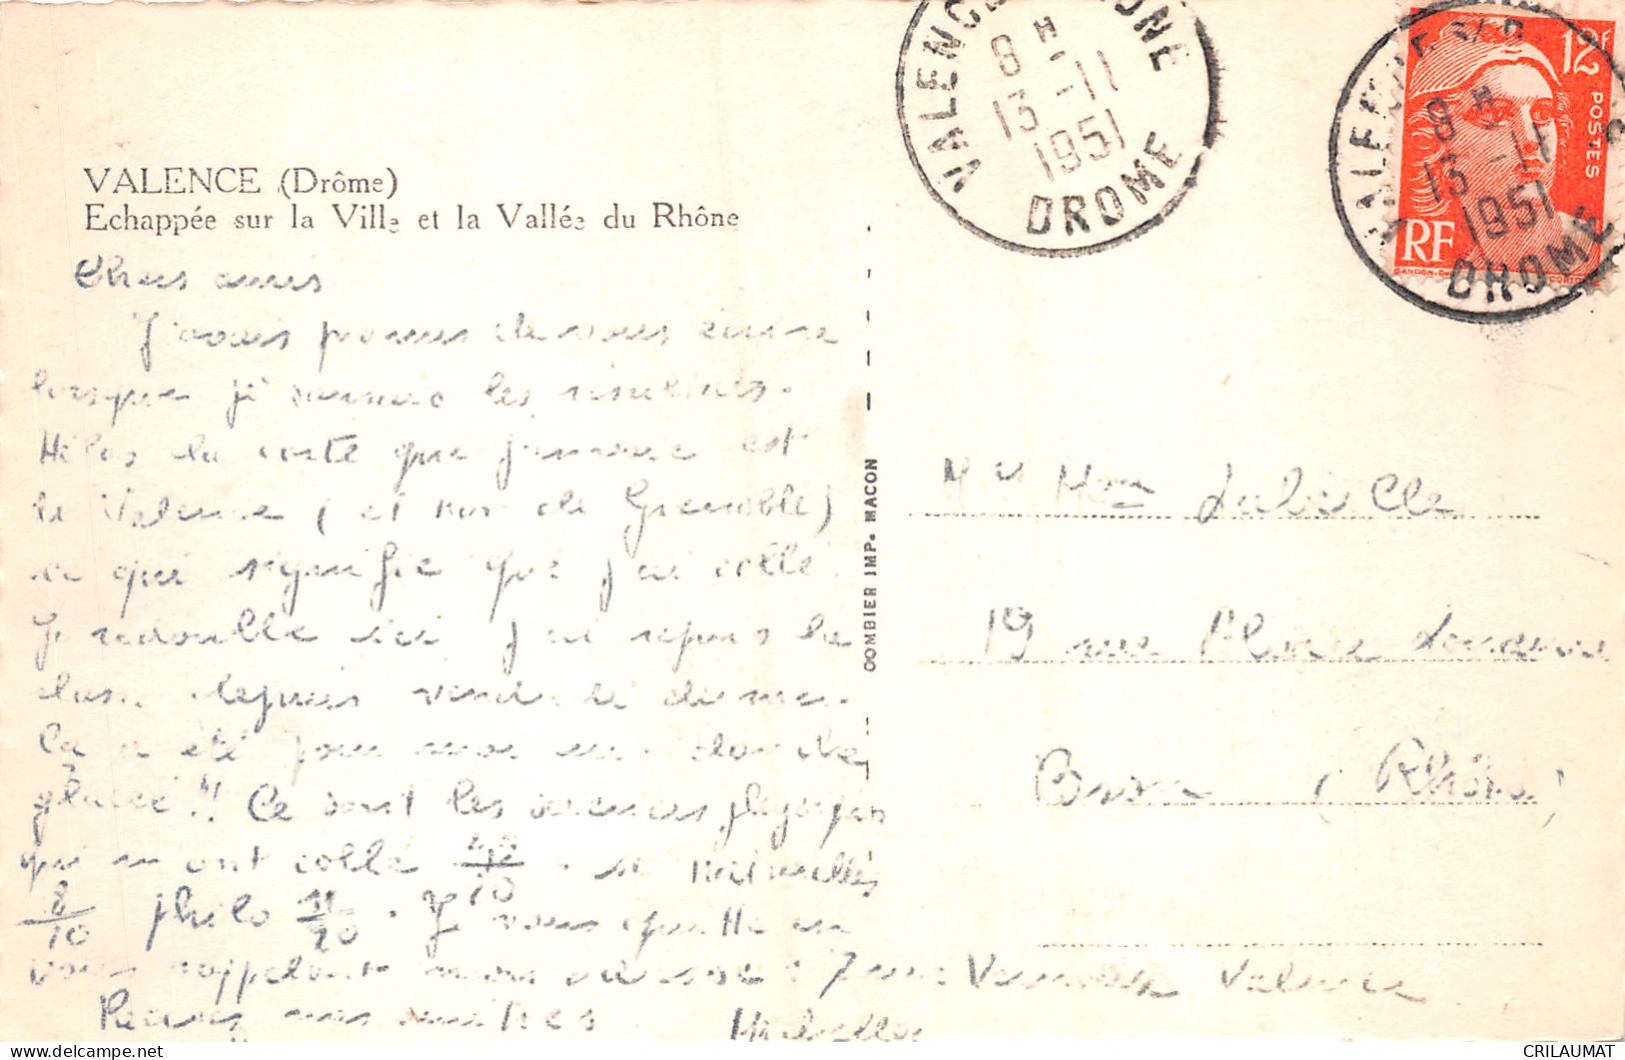 VALENCE (Drôme)
Echappée sur la Ville et la Vallée du Rhône
Chers amis
J'avais promis de vous écrire
lorsque j'aurais les résultats.
Hélas la carte que j'envoie est
de Valence (et non de Grenoble)
ce qui signifie que j'ai collé.
Je redouble ici j'ai repris la
classe depuis vendredi dernier.
Ça a été pour moi une douche
glacée!! Ce sont les sciences physiques
qui m'ont collé /10. sc naturelles
8/10 philo 11/20. Je vous quitte en
vous rappelant mon adresse: 7 rue Valence
Recevez mes amitiés
Mr et Mme
19 rue
(Rhône)
COMBIER IMP. MACON
VALENCE RHONE
8 H
13 -11
1951
DROME
12F
POSTES
RF
GANDON
VALENCE
8 H
13 -11
1951
DROME
CRILAUMAT